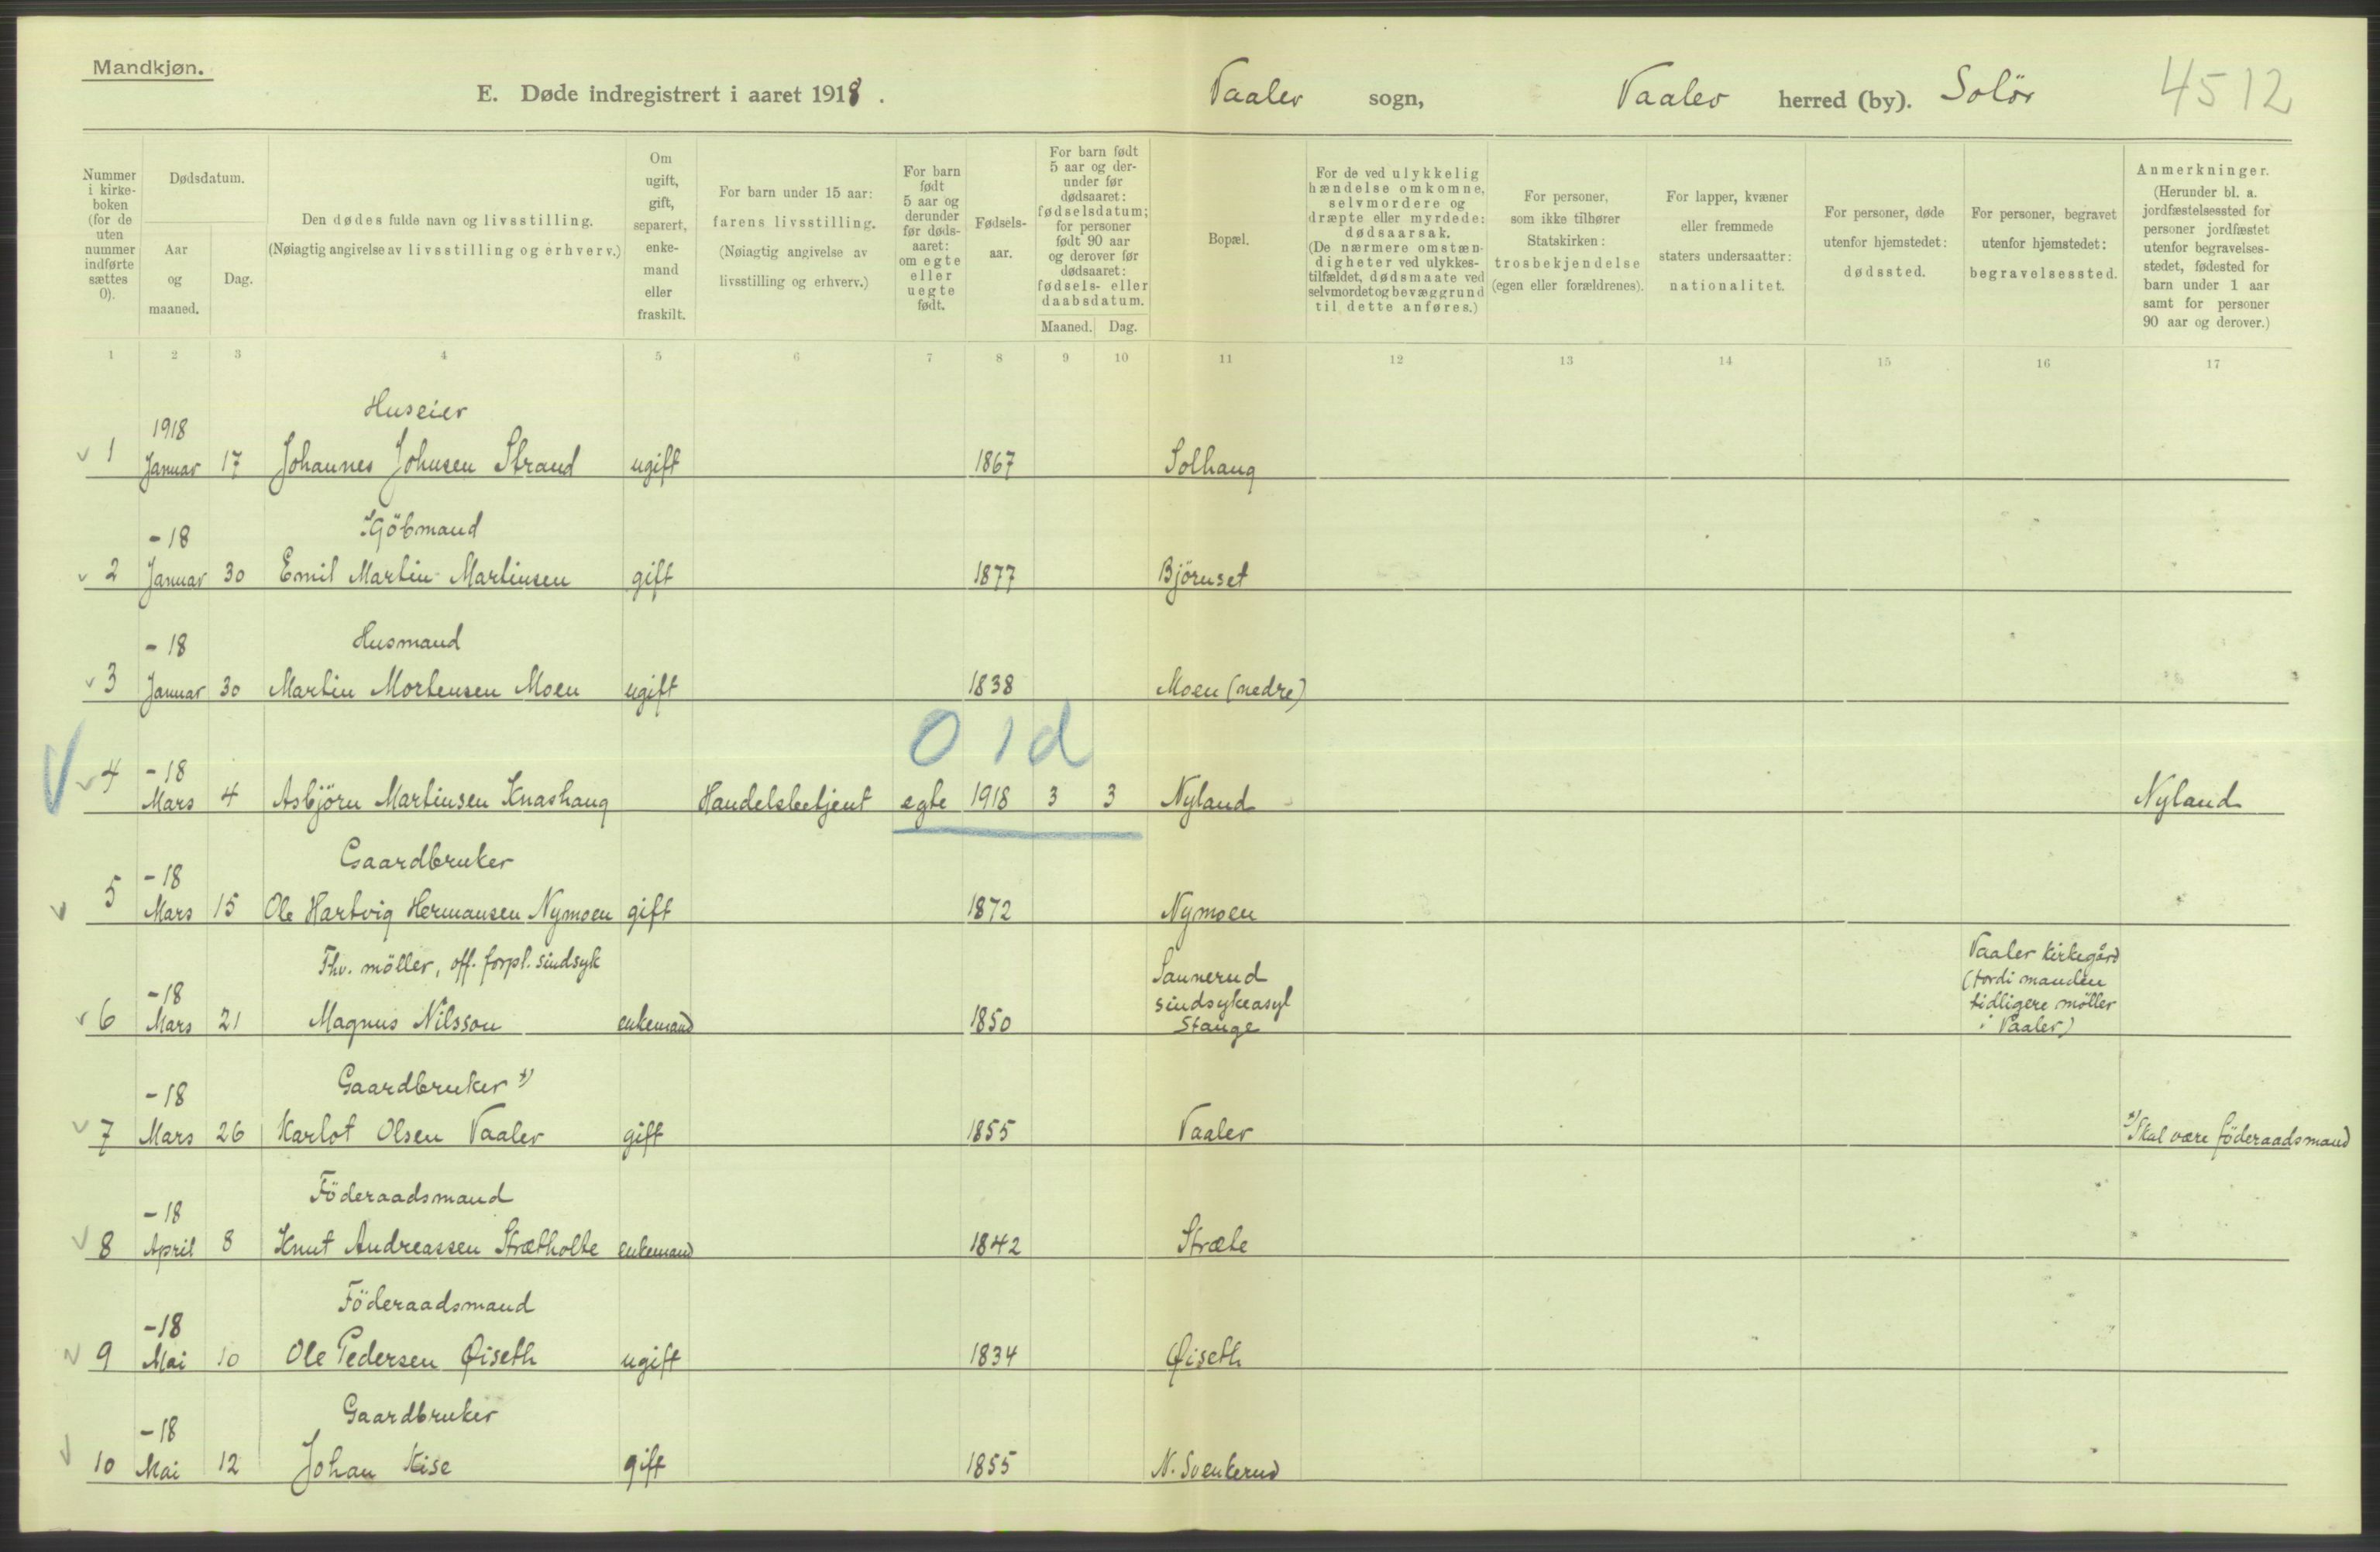 Mandkjøn.
E. Døde indregistrert i aaret 1918. Vaaler sogn, Vaaler herred (by). Solör 4512
Nummer i kirke-boken (for de uten nummer indførte sættes 0).
Dødsdatum.
Aar og maaned.
Dag.
Den dødes fulde navn og livsstilling. (Nøiagtig angivelse av livsstilling og erhverv.)
Om ugift, gift, separert, enke-mand eller fraskilt.
For barn under 15 aar: farens livsstilling. (Nøiagtig angivelse av livsstilling og erhverv.)
For barn født 5 aar og derunder før døds-aaret: om egte eller uegte født.
Fødsels-aar.
For barn født 5 aar og der-under før dødsaaret: fødselsdatum; for personer født 90 aar og derover før dødsaaret: fødsels- eller daabsdatum.
Maaned. Dag.
Bopæl.
For de ved ulykkelig hændelse omkomne, selvmordere og dræpte eller myrdede: dødsaarsak. (De nærmere omstæn-digheter ved ulykkes-tilfældet, dødsmaate ved selvmordet og bevæggrund til dette anføres.)
For personer, som ikke tilhører Statskirken: trosbekjendelse (egen eller forældrenes).
For lapper, kvæner eller fremmede staters undersaatter: nationalitet.
For personer, døde utenfor hjemstedet: dødssted.
For personer, begravet utenfor hjemstedet: begravelsessted.
Anmerkninger. (Herunder bl. a. jordfæstelsessted for personer jordfæstet utenfor begravelses-stedet, fødested for barn under 1 aar samt for personer 90 aar og derover.)
1 2 3 4 5 6 7 8 9 10 11 12 13 14 15 16 17
Huseier
1918
1 Januar 17 Johannes Johnsen Strand ugift 1867 Solhaug
Kjöbmand
-18
2 Januar 30 Emil Martin Martinsen gift 1877 Björnset
-18 Husmand
3 Januar 30 Martin Mortensen Moen ugift 1838 Moen (nedre)
0 1d
-18
4 Mars 4 Asbjörn Martinsen Knashaug Handelsbetjent egte 1918 3 3 Nyland Nyland
Gaardbruker
-18
5 Mars 15 Ole Hartvig Hermansen Nymoen gift 1872 Nymoen
Fhv. möller, off. forpl. sindsyk
-18
6 Mars 21 Magnus Nilsson enkemand 1850
Sannerud
sindsykeasyl
Stange
Vaaler kirkegård
(fordi manden
tidligere möller
i Vaaler)
Gaardbruker x)
-18
7 Mars 26 Karlot Olsen Vaaler gift 1855 Vaaler x) Skal være föderaadsmand
Föderaadsmand
-18
8 April 8 Knut Andreassen Strætholte enkemand 1842 Stræte
Föderaadsmand
-18
9 Mai 10 Ole Pedersen Øiseth ugift 1834 Øiseth
Gaardbruker
-18
10 Mai 12 Johan Kise gift 1855 N. Svenkerud